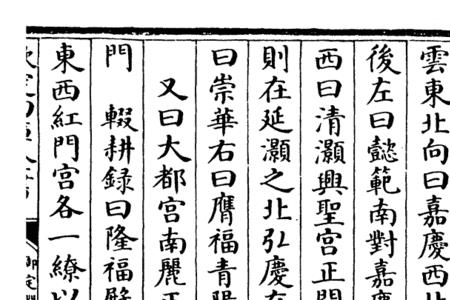 雲東北向曰嘉慶西北
後左曰懿範南對嘉慶
西曰清灝興聖宫正門
則在延灝之北弘慶在
曰崇華右曰膺福青陽
又曰大都宫南麗正
門　輟耕録曰隆福殿
東西紅門宫各一繚以
欽定四庫全書